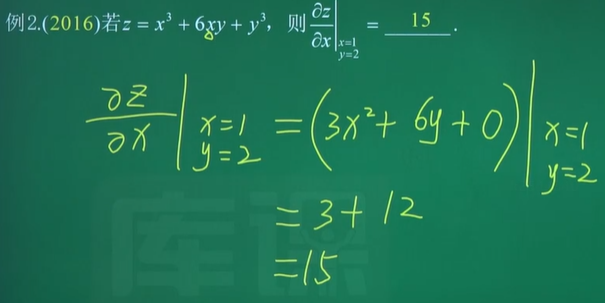 例2.(2016)若z = x³ + 6xy + y³, 则 ∂z/∂x|x=1 y=2 = 15 .
∂z/∂x | x=1 y=2 = (3x²+ 6y + 0) | x=1 y=2
= 3 + 12
=15
库课